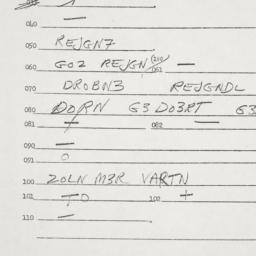 040 —
050 REJGN7
060 GO2 REJGN —
070 DROBN3 REJGNDL
080 DORN G3 DO3RT G3
081 + 082 —
090 —
091 O
100 ZOLN M3R VARTN
101 TO 102 +
110 —